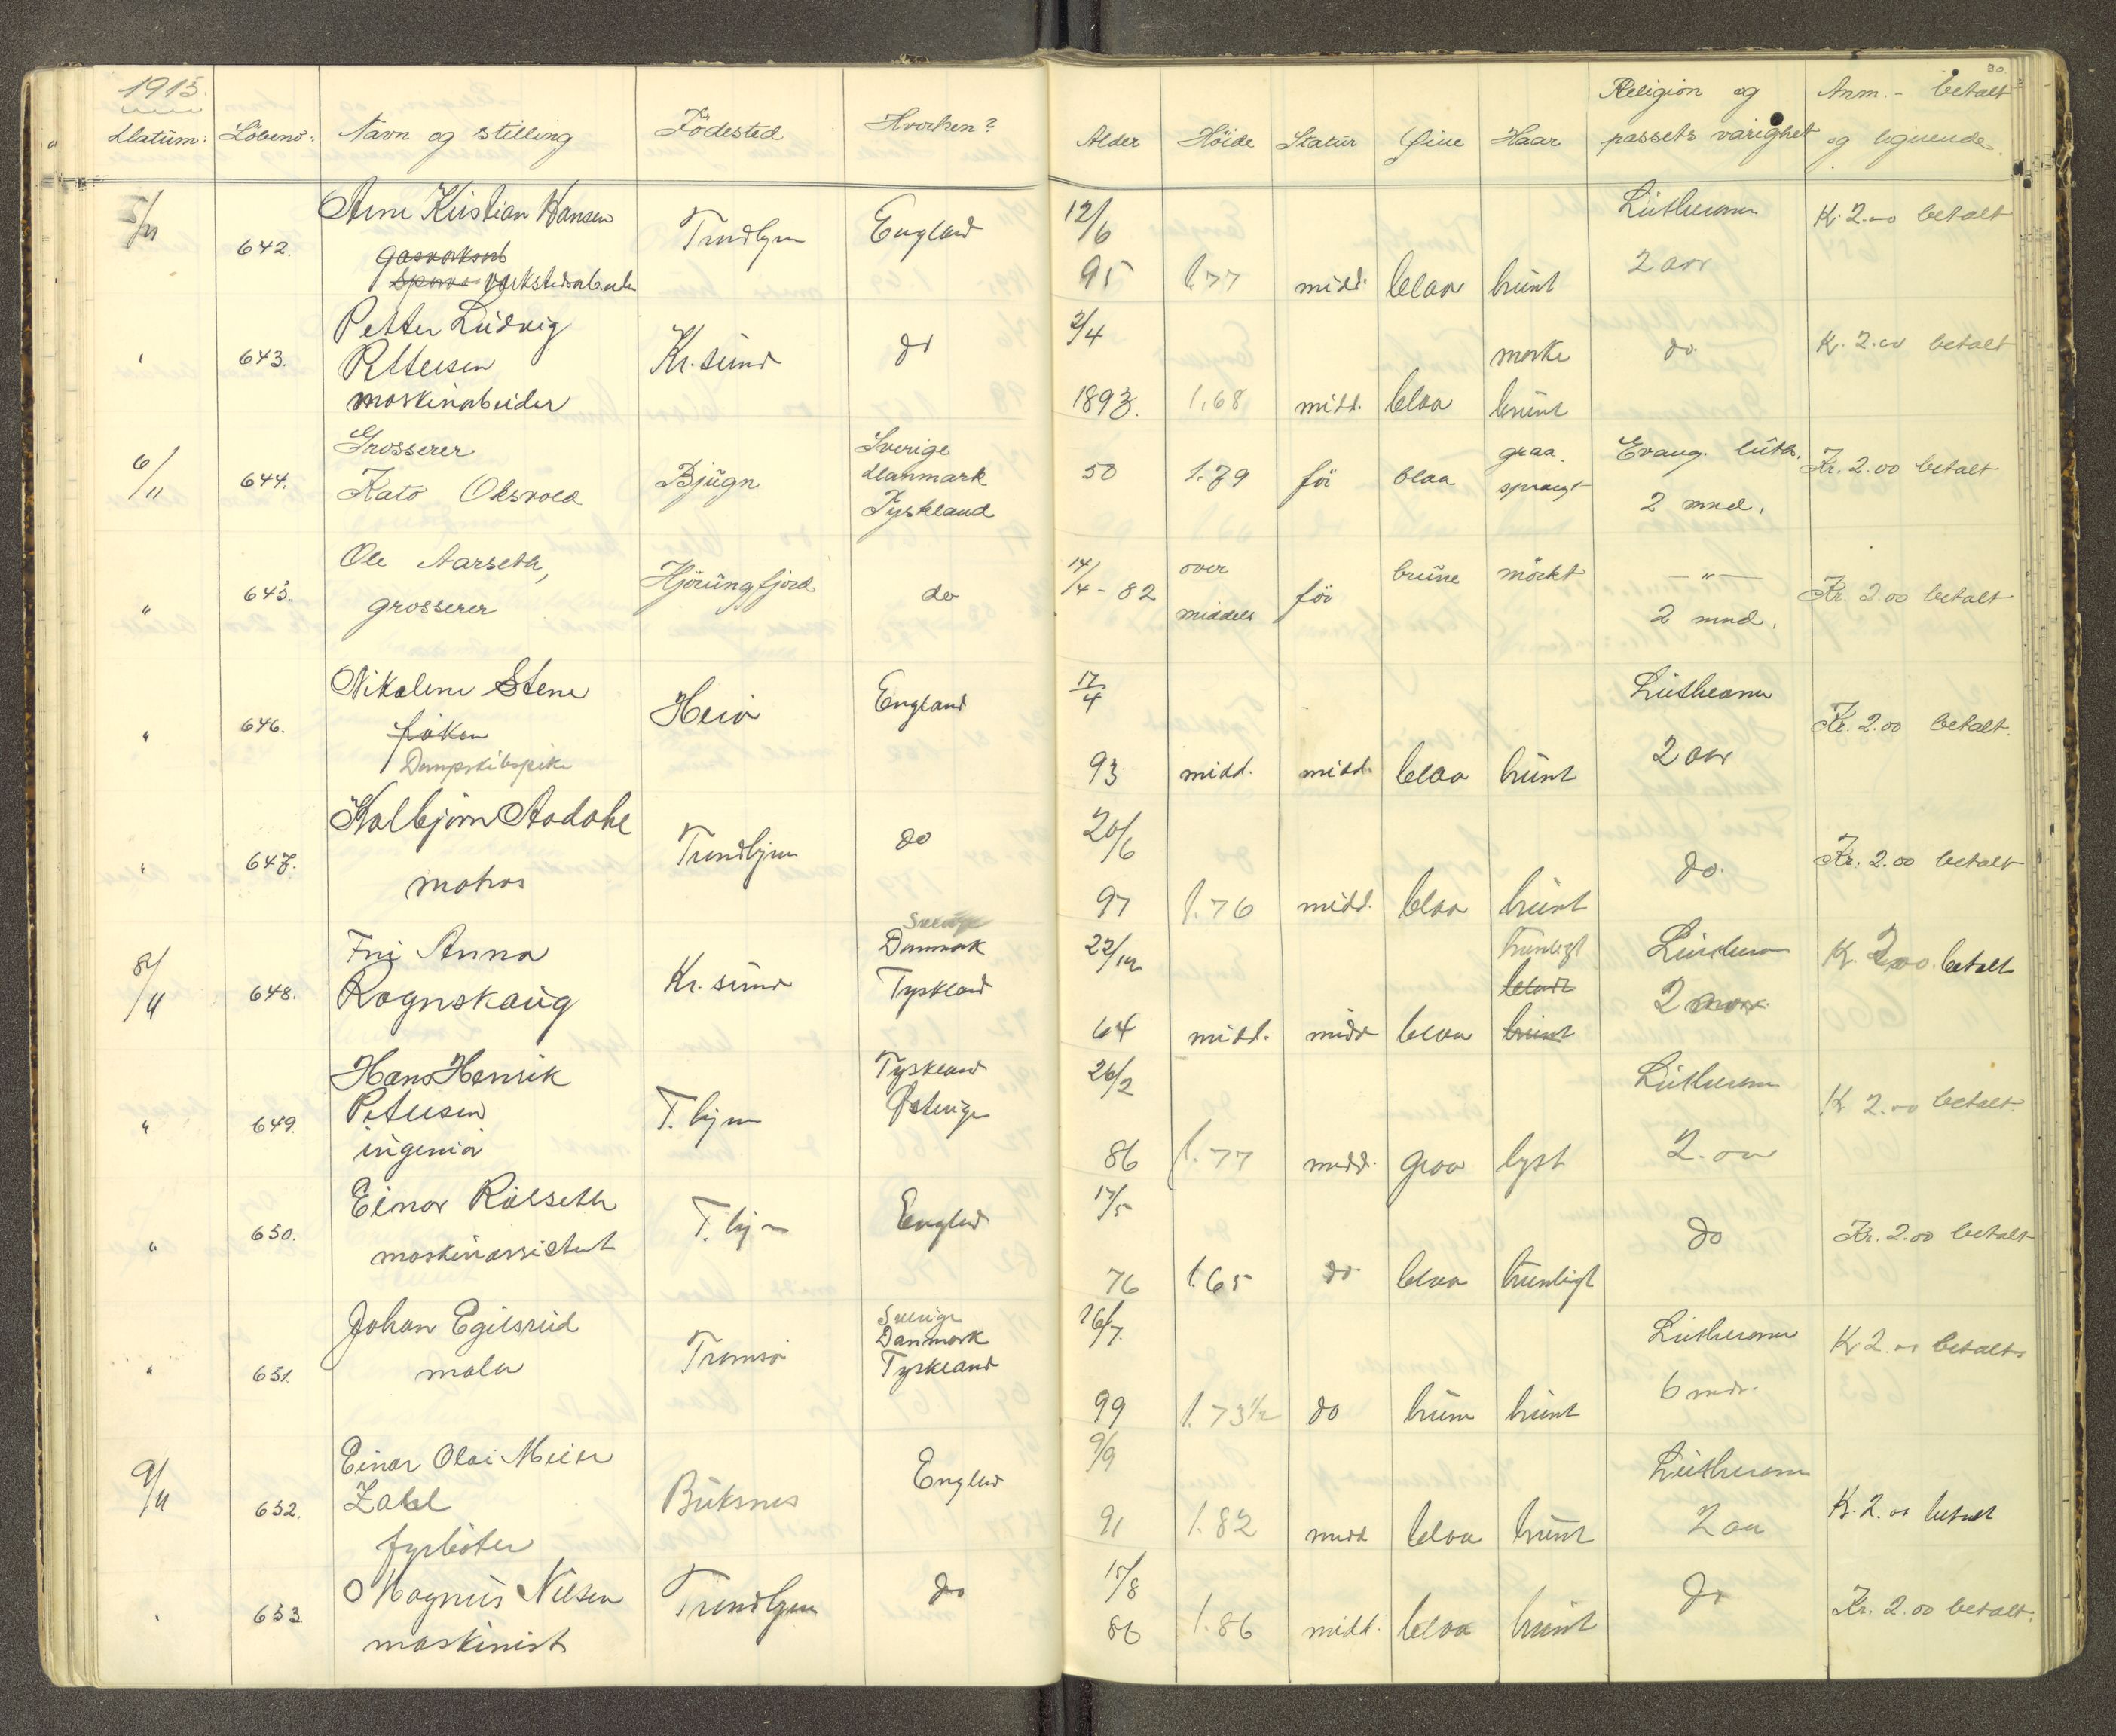 30.
1915.
Datum: Löbeno: Navn og stilling Födested Hvorhen? Alder Höide Statur Öine Haar Religion og passets varighet Anm. - betalt og lignende.
5/11 642. Arne Kristian Hansen Trondhjem England 12/6 Lutheraner Kr. 2.00 betalt
95 1.77 midd. blaa brunt 2 aar
verkstedsarbeider
" 643. Petter Ludvig Kr.sund do 2/4 do. Kr. 2.00 betalt
Pettersen mørke
maskinarbeider 1893. 1.68 midd. blaa brunt
6/11 644. Grosserer Bjugn Sverige 50 1.79 før blaa graa. Evang. luth. Kr. 2.00 betalt
Kato Oksvold Danmark sprængt 2 mnd.
Tyskland
" 645. Ole Aarseth, Hjörungfjord do 14/4 - 82 over före brune mörkt — " — Kr. 2.00 betalt
grosserer middels 2 mnd.
" 646. Nikoline Stene England 17/4 Lutheraner Kr. 2.00 betalt.
frøken 93 midd. midd. blaa brunt 2 aar
Dampskibspike
" 647. Kolbjørn Trondhjem do 20/6 do. Kr. 2.00 betalt
matros 97 1.76 midd. blaa brunt
8/11 648. Fru Anna Kr. sund Sverige 22/12 brunligt Lutheran Kr. 2.00 betalt
Rognskaug Danmark 2
Tyskland 64 midd. midd blaa brunt
" 649. Hans Henrik T.hjem Tyskland 26/2 Lutheraner Kr 2.00 betalt.
Petersen Østerige
ingeniør 86 1.77 midd. graa lyst 2. aar
" 650. Einar Rølseth T.hjem England 17/5 do Kr. 2.00 betalt
maskinassistent 76 1.65 do. blaa brunligt
" 651. Johan Egilsrud Tromsø Sverige 26/7. Lutheraner Kr 2.00 betalt.
maler Danmark
Tyskland 99 1.73 1/2 do brune brunt 6 mdr.
9/11 652. Einar Olai Meier Buksnes England 9/9 Lutheraner Kr. 2.00 betalt
Zahl 91 1.82 midd blaa brunt 2 aar
fyrbøter
" 653. Magnus Nilsen Trondhjem do 15/8 do Kr. 2.00 betalt.
maskinist 86 1.86 midd. blaa brunt